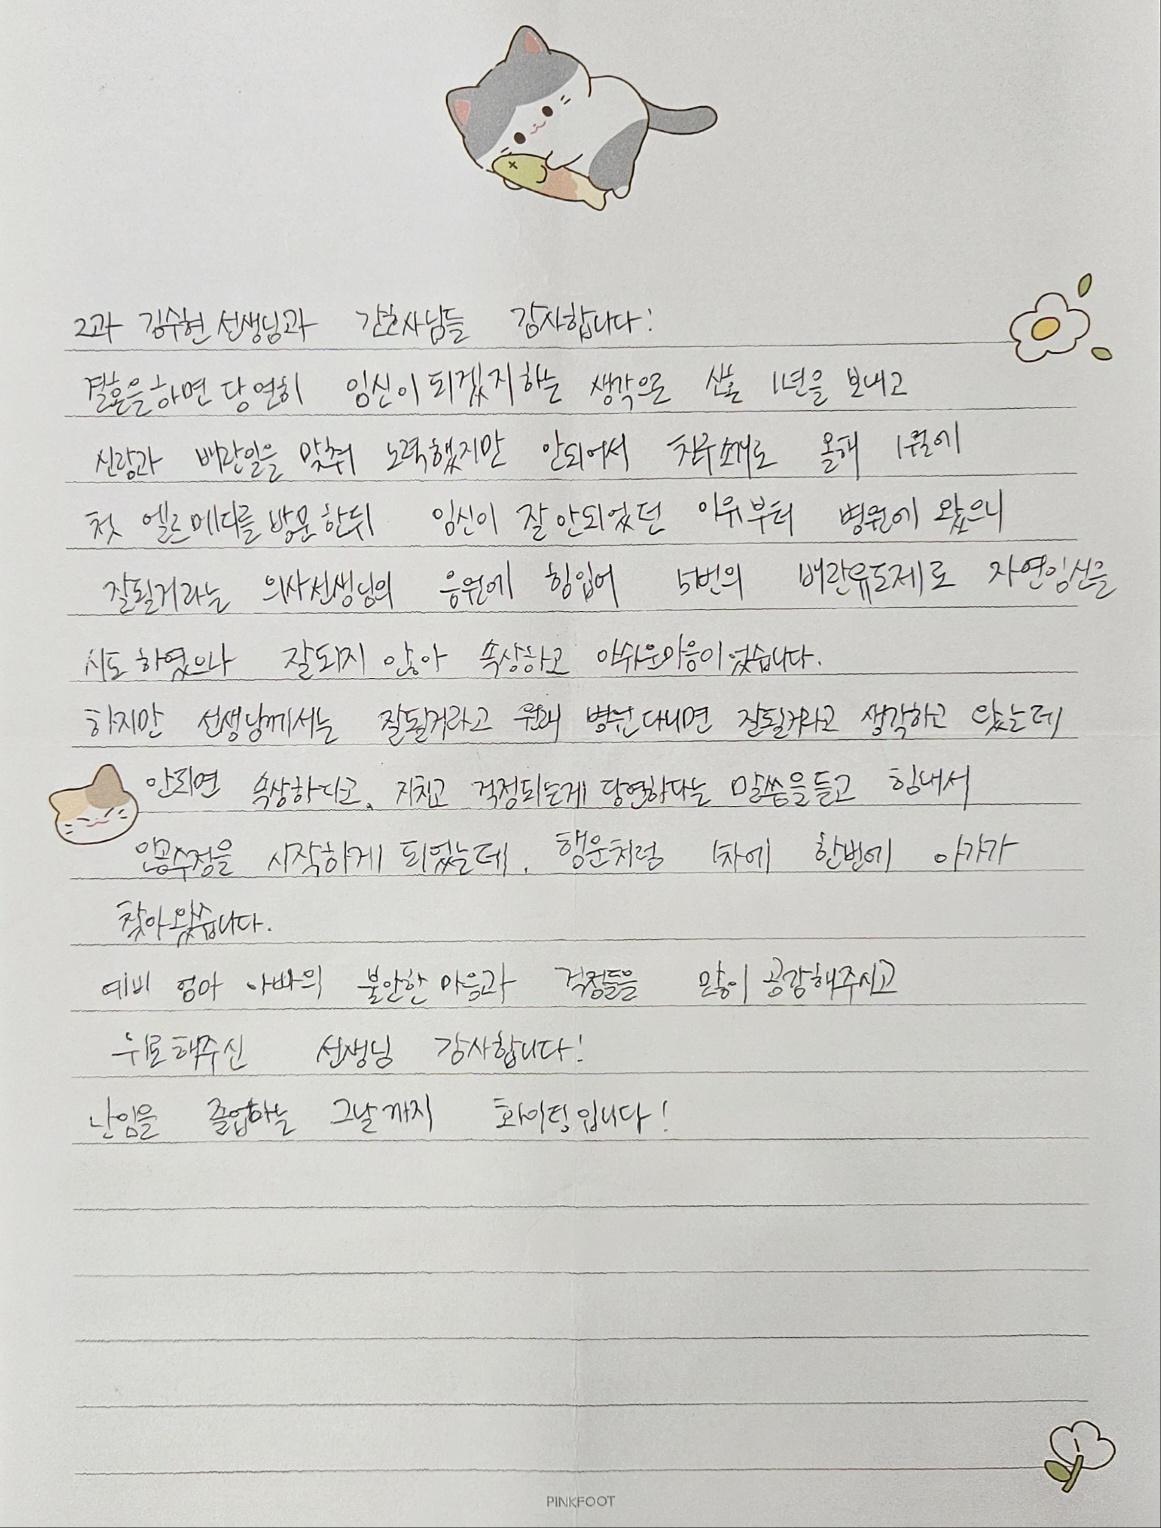 2과 김수현 선생님과 간호사님들 감사합니다!
결혼을하면 당연히 임신이 되겠지하는 생각으로 신혼 1년을 보내고
신랑과 배란일을 맞춰 노력했지만 안되어서 친구소개로 올해 1월에
첫 엘르메디를 방문한뒤 임신이 잘안되었던 이유부터 병원에 왔으니
잘될거라는 의사선생님의 응원에 힘입어 5번의 배란유도제로 자연임신을
시도 하였으나 잘되지 않아 속상하고 아쉬운마음이었습니다.
하지만 선생님께서는 잘될거라고 원래 병원다니면 잘될거라고 생각하고 왔는데
안되면 속상하다고, 지치고 걱정되는게 당연하다는 말씀을듣고 힘내서
인공수정을 시작하게 되었는데, 행운처럼 1차에 한번에 아가가
찾아왔습니다.
예비 엄마 아빠의 불안한 마음과 걱정들을 많이 공감해주시고
위로해주신 선생님 감사합니다!
난임을 졸업하는 그날까지 화이팅입니다!
PINKFOOT